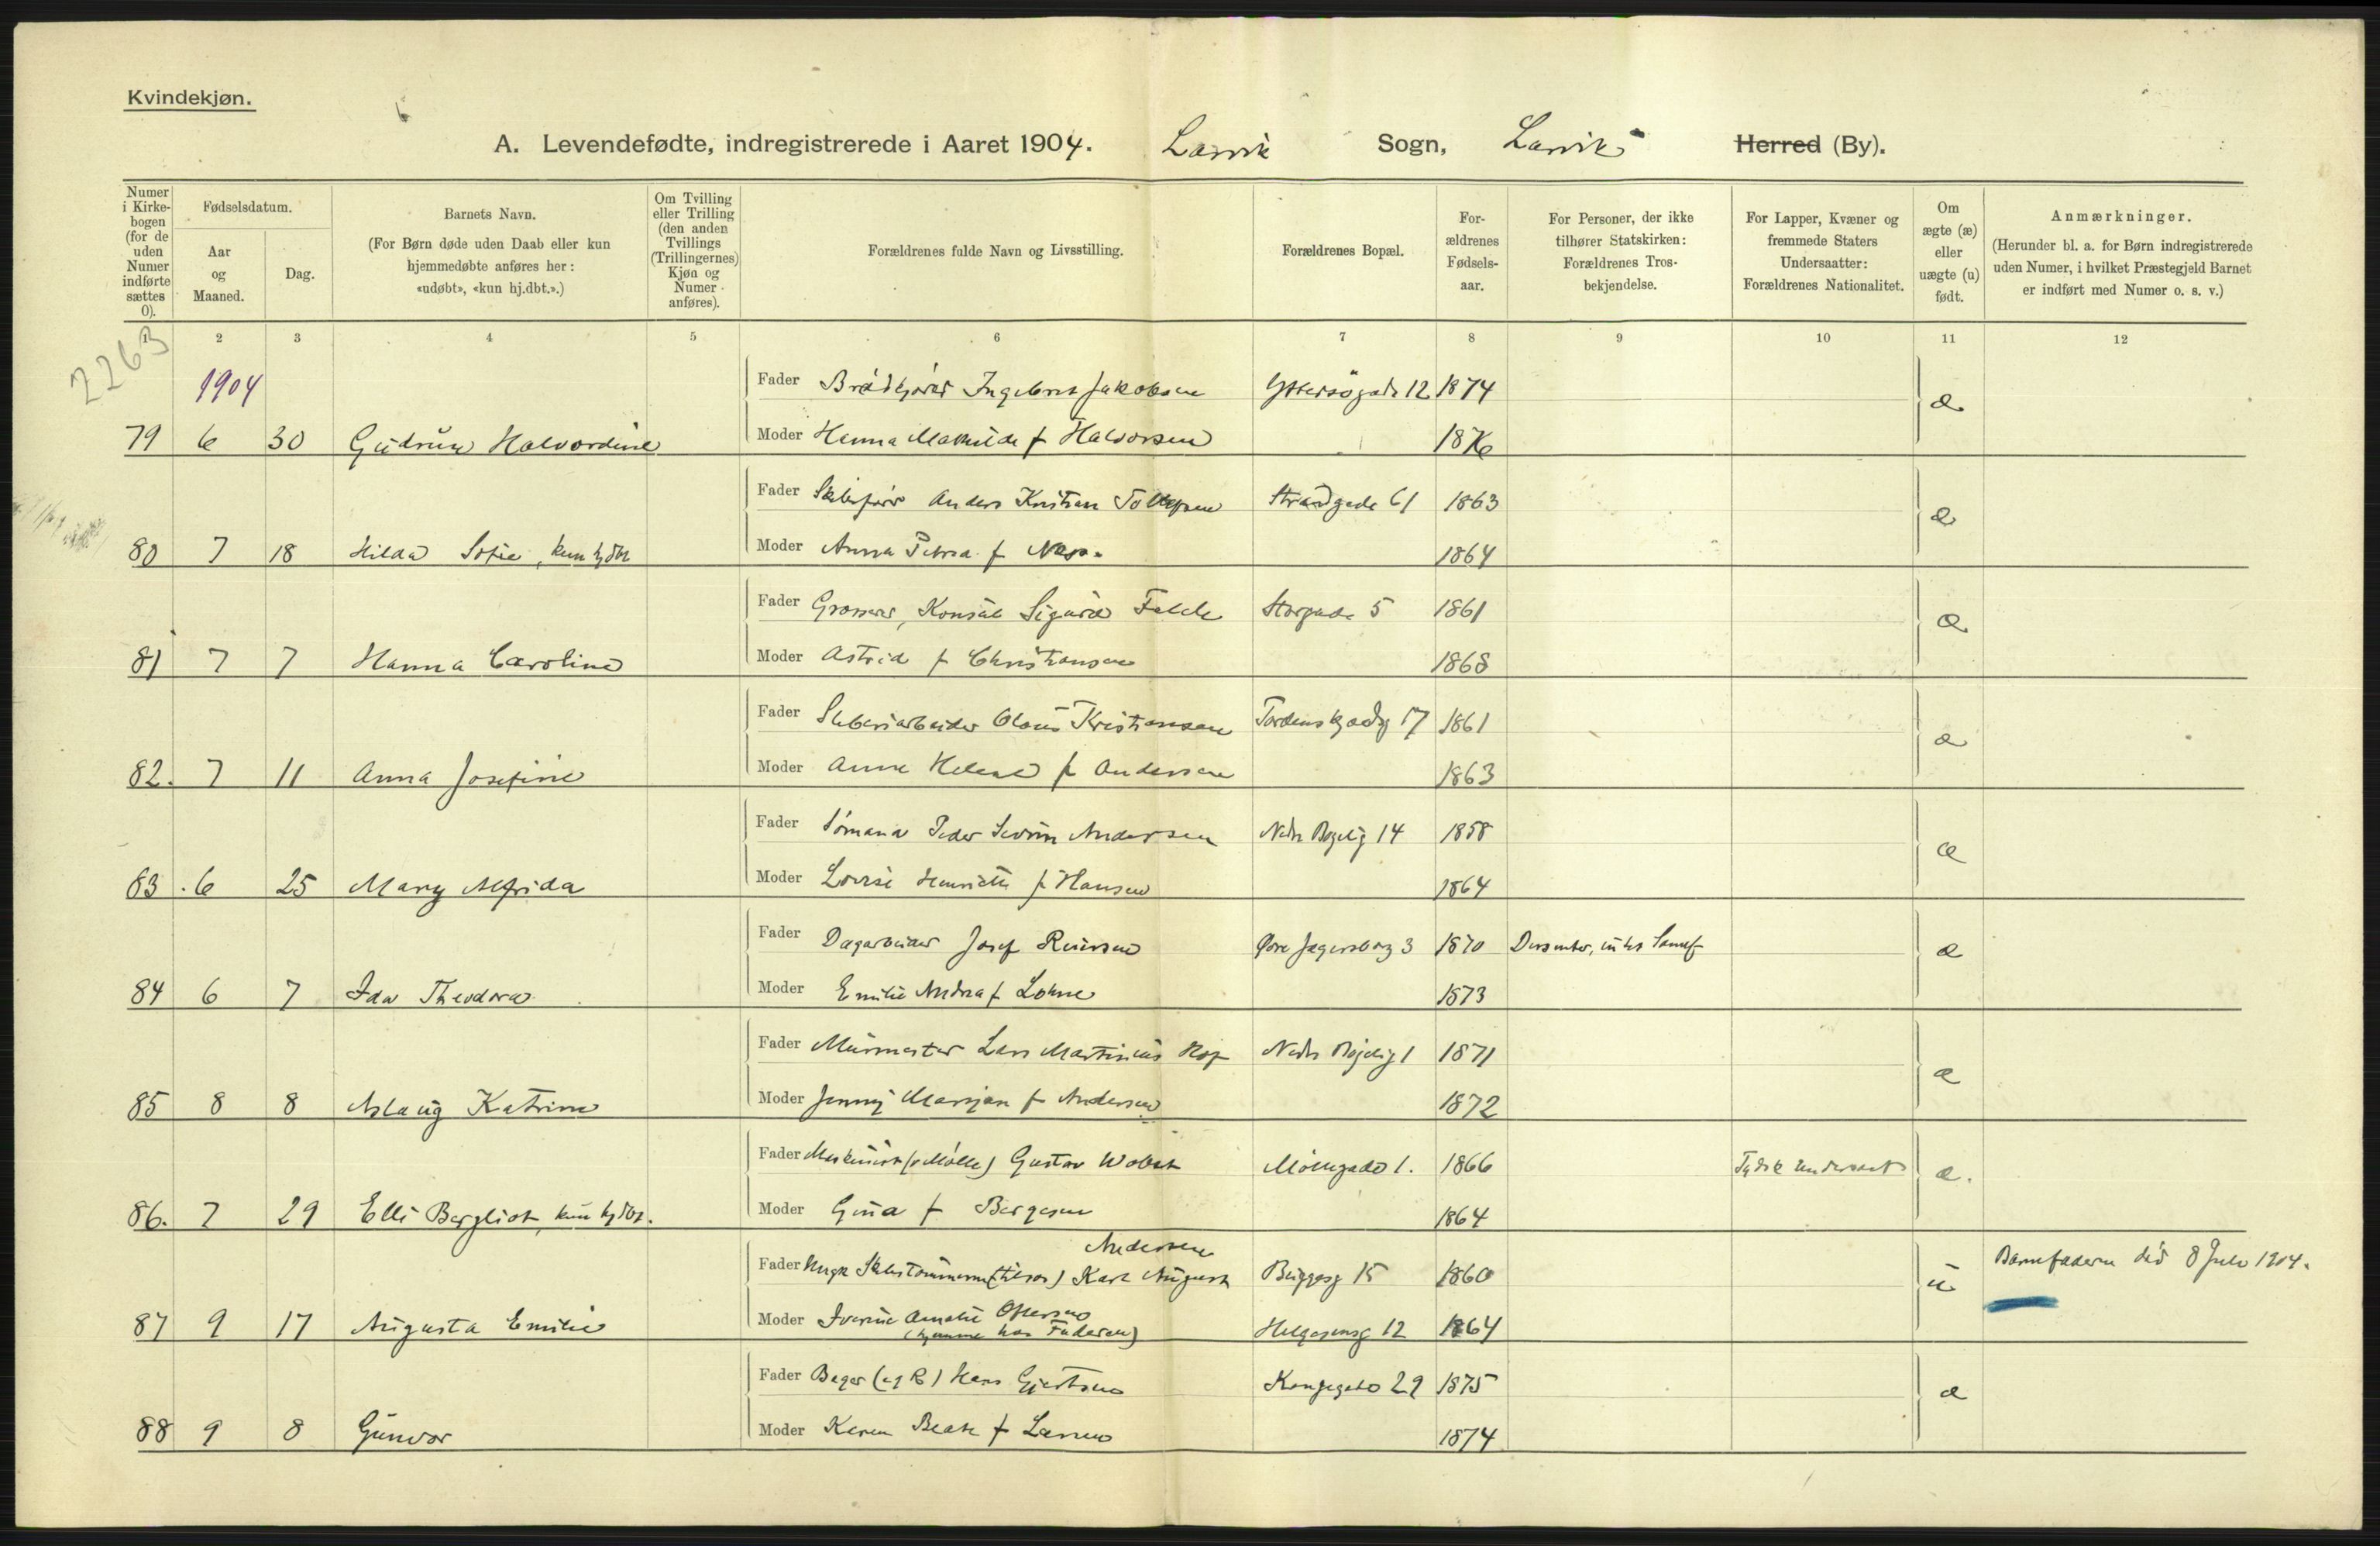 Kvindekjøn.
6
A. Levendefødte, indregistrerede i Aaret 1904. Larvik Sogn, Larvik Herred (By).
Numer i Kirke-bogen (for de uden Numer indførte sættes 0).
Fødselsdatum.
Aar og Maaned.
Dag.
Barnets Navn.
(For Børn døde uden Daab eller kun hjemmedøbte anføres her: «udøbt», «kun hj.dbt.».)
Om Tvilling eller Trilling (den anden Tvillings (Trillingernes) Kjøn og Numer anføres).
Forældrenes fulde Navn og Livsstilling.
Forældrenes Bopæl.
For-ældrenes Fødsels-aar.
For Personer, der ikke tilhører Statskirken: Forældrenes Tros-bekjendelse.
For Lapper, Kvæner og fremmede Staters Undersaatter: Forældrenes Nationalitet.
Om ægte (æ) eller uægte (u) født.
Anmærkninger.
(Herunder bl. a. for Børn indregistrerede uden Numer, i hvilket Præstegjeld Barnet er indført med Numer o. s. v.)
1 2 3 4 5 6 7 8 9 10 11 12
2263
1904
Fader Ingebret Jakobsen 12 1874 æ
79 6 30 Gudrun Halvordine Moder Hanna Mathilde f Halvorsen 1876
Fader Anders Kristian Strandgade 61 1863 æ
80 7 18 Hilda Sofie, kun hj dbt Moder Anna Petrea f 1864
Fader Grosserer, Konsul Sigurd Storgade 5 1861 æ
81 7 7 Hanna Caroline Moder Astrid f Christiansen 1868
Fader Sliberiarbeider Olaus Kristiansen Tordenskjoldsg 17 1861 æ
82. 7 11 Anna Josefine Moder Anne Helene f Andersen 1863
Fader Sömand Peder Severin Andersen Nedre Bøgelig 14 1858 æ
83 6 25 Mary Alfrida Moder Lovise Henriette f Hansen 1864
Fader Dagarbeider Josef Øvre Jegersborg 3 1870 Dissenter, æ
84 6 7 Ida Theodora Moder Emilie Andrea f Lohne 1873
Fader Murmester Lars Martinius Nedre Bøgelig 1 1871 æ
85 8 8 Aslaug Katrine Moder Jenny Marijane f Andersen 1872
Fader Maskinist (v Mölle) Gustav Möllegade 1. 1866 Tydsk undersaat æ.
86. 7 29 Elli Bergliot, kun hj dbt. Moder Gina f Børgesen 1864
Andersen
Fader Ungk Skibstømmermand Karl August Buggesg 15 1860 u Barnefaderen död 8 Juli 1904.
87 9 17 Augusta Emilie Moder Iverine Amalie (hjemme hos Faderen) Helgesensg 12 1864
Fader Bager Hans Gjertsen Kongegade 29 1875 æ
88 9 8 Gunvor Moder Karen Beate f Larsen 1874